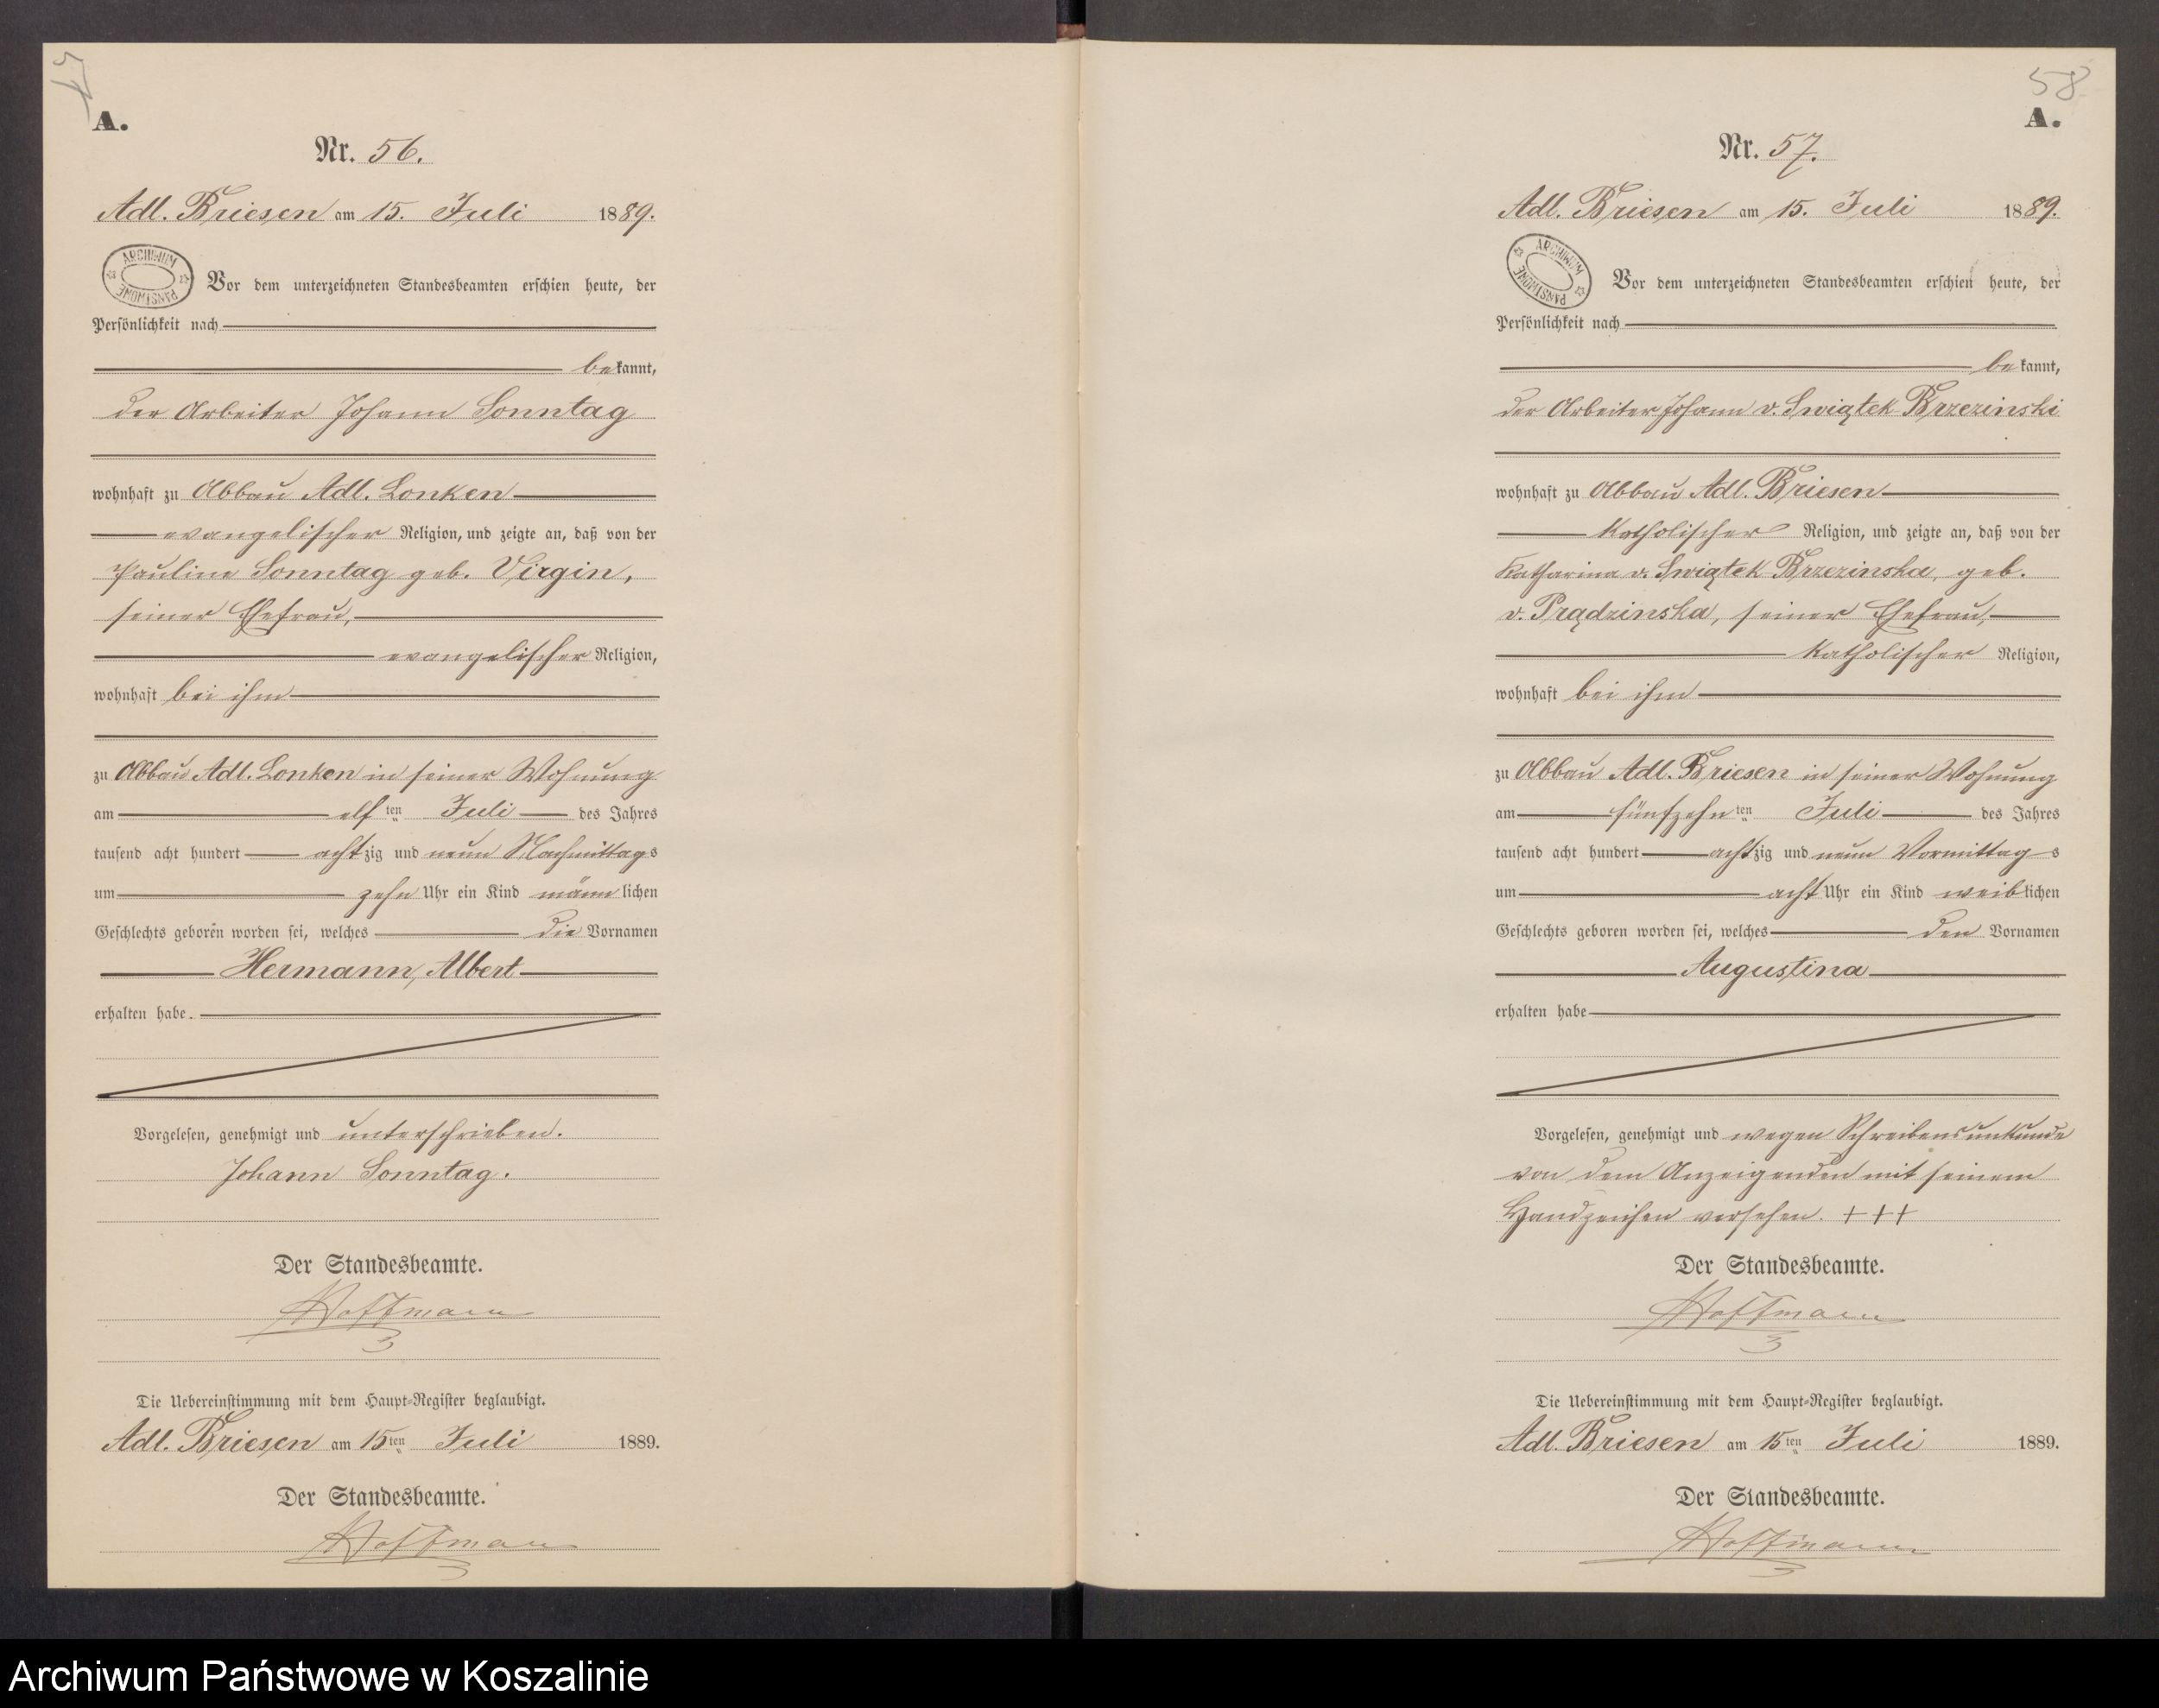 57
A.
Nr. 56.
Adl. Briesen am 15. Juli 1889.
ARCHIWUM PAŃSTWOWE
Vor dem unterzeichneten Standesbeamten erschien heute, der
Persönlichkeit nach
bekannt,
der Arbeiter Johann Sonntag
wohnhaft zu Abbau Adl. Lonken
evangelischer Religion, und zeigte an, daß von der
Pauline Sonntag geb. Virgin,
seiner Ehefrau,
evangelischer Religion,
wohnhaft bei ihm
zu Abbau Adl. Lonken in seiner Wohnung
am elf ten Juli des Jahres
tausend acht hundert achtzig und neun Nachmittags
um zehn Uhr ein Kind männlichen
Geschlechts geboren worden sei, welches die Vornamen
Hermann, Albert
erhalten habe.
Vorgelesen, genehmigt und unterschrieben.
Johann Sonntag.
Der Standesbeamte.
Hoffmann
Die Uebereinstimmung mit dem Haupt-Register beglaubigt.
Adl. Briesen am 15ten Juli 1889.
Der Standesbeamte.
Hoffmann
58
A.
Nr. 57.
Adl. Briesen am 15. Juli 1889.
ARCHIWUM PAŃSTWOWE
Vor dem unterzeichneten Standesbeamten erschien heute, der
Persönlichkeit nach
bekannt,
der Arbeiter Johann v. Swiątek Brzezinski
wohnhaft zu Abbau Adl. Briesen
katholischer Religion, und zeigte an, daß von der
Katharina v. Swiątek Brzezinska, geb.
v. Prądzinska, seiner Ehefrau,
katholischer Religion,
wohnhaft bei ihm
zu Abbau Adl. Briesen in seiner Wohnung
am fünfzehn ten Juli des Jahres
tausend acht hundert achtzig und neun Vormittags
um acht Uhr ein Kind weiblichen
Geschlechts geboren worden sei, welches den Vornamen
Augustina
erhalten habe
Vorgelesen, genehmigt und wegen Schreibensunkunde
von dem Anzeigenden mit seinem
Handzeichen versehen. +++
Der Standesbeamte.
Hoffmann
Die Uebereinstimmung mit dem Haupt-Register beglaubigt.
Adl. Briesen am 15ten Juli 1889.
Der Standesbeamte.
Hoffmann
Archiwum Państwowe w Koszalinie